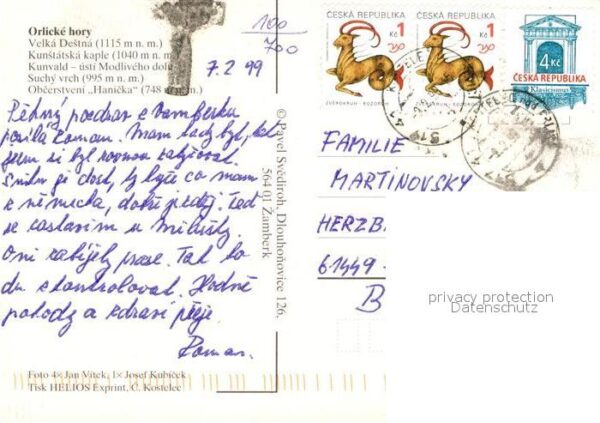 Orlické hory
Velká Deštná (1115 m n. m.)
Kunštátská kaple (1040 m n. m.)
Kunvald – ústí Modlivého dolu
Suchý vrch (995 m n. m.)
Občerstvení „Hanička" (748 m n. m.)
100
700
7.2.99
Pěkný pozdrav z Žamberku
posílá Roman. Mám tady být, kde
jsem si byl rovnou zalyžovat.
Sněhu je dost, ty lyže co mám
z německa, dobře jedzj. Teď
se zastavím u Milušky.
Oni zabíjely prase. Tak to
du zkontrolovat. Hodně
pohody a zdraví přeje
Roman.
Foto 4× Jan Vítek, 1× Josef Kubíček
Tisk HELIOS Exprint, Č. Kostelec
© Pavel Svědiroh, Dlouhoňovice 126,
564 01 Žamberk
ČESKÁ REPUBLIKA
1 Kč
ZVĚROKRUH - KOZOROH
ČESKÁ REPUBLIKA
1 Kč
ZVĚROKRUH - KOZOROH
4 Kč
ČESKÁ REPUBLIKA
Klasicismus
FAMILIE
MARTINOVSKY
HERZB
61449
B
privacy protection
Datenschutz